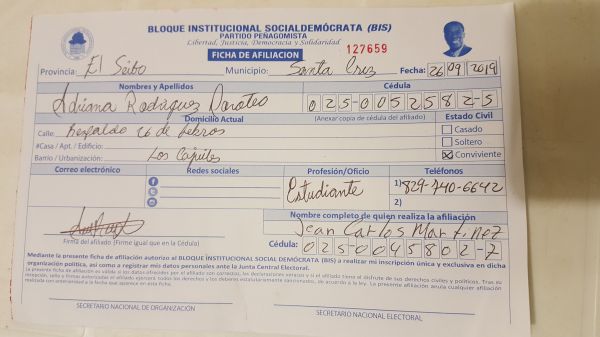 BLOQUE INSTITUCIONAL SOCIALDEMÓCRATA (BIS)
PARTIDO PEÑAGOMISTA
Libertad, Justicia, Democracia y Solidaridad
FICHA DE AFILIACION 127659
Provincia: El Seibo Municipio: Santa Cruz Fecha: 26/09/2019
Nombres y Apellidos Cédula
Adriana Rodríguez 025-0052582-5
Domicilio Actual (Anexar copia de cédula del afiliado) Estado Civil
Calle: 16 de Casado
#Casa / Apt. / Edificio: Soltero
Barrio / Urbanización: Los Conviviente
Correo electrónico Redes sociales Profesión/Oficio Teléfonos
Estudiante 1) 829-740-6642
2)
Nombre completo de quien realiza la afiliación
Jean Carlos Martinez
Firma del afiliado (Firme igual que en la Cédula) Cédula: 025-0045802-7
Mediante la presente ficha de afiliación autorizo al BLOQUE INSTITUCIONAL SOCIAL DEMÓCRATA (BIS) a realizar mi inscripción única y exclusiva en dicha
organización política, así como a registrar mis datos personales ante la Junta Central Electoral.
SECRETARIO NACIONAL DE ORGANIZACIÓN SECRETARIO NACIONAL ELECTORAL